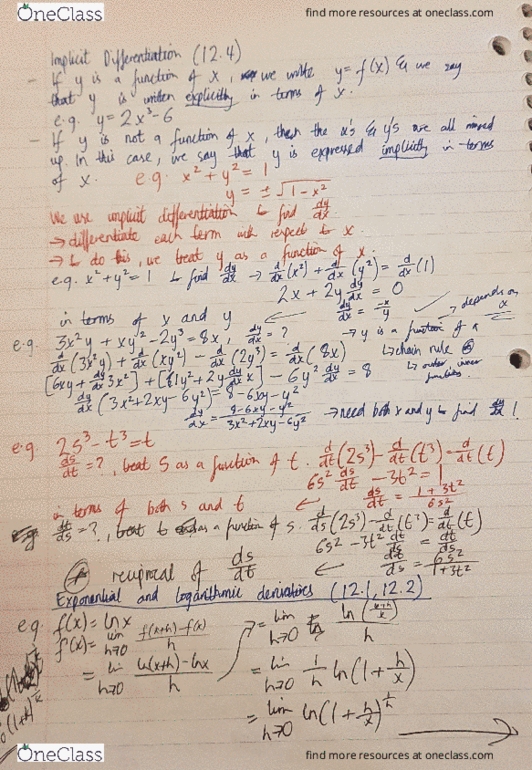 OneClass
find more resources at oneclass.com
Implicit Differentiation (12.4)
- If y is a function of x, we write y = f(x) & we say
that y is written explicitly in terms of x.
e.g. y = 2x³ - 6
- If y is not a function of x, then the x's & y's are all mixed
up. In this case, we say that y is expressed implicitly in terms
of x. e.g. x² + y² = 1
y = ± √(1 - x²)
We use implicit differentiation to find dy/dx.
→ differentiate each term with respect to x.
→ to do this, we treat y as a function of x.
e.g. x² + y² = 1 to find dy/dx → d/dx (x²) + d/dx (y²) = d/dx (1)
2x + 2y dy/dx = 0
in terms of x and y ← dy/dx = -x/y → depends on x
e.g. 3x²y + xy² - 2y³ = 8x, dy/dx = ? → y is a function of x
d/dx (3x²y) + d/dx (xy²) - d/dx (2y³) = d/dx (8x) ↳ chain rule
↳ outer, inner functions
[6xy + dy/dx 3x²] + [1y² + 2y dy/dx x] - 6y² dy/dx = 8
dy/dx (3x² + 2xy - 6y²) = 8 - 6xy - y²
dy/dx = (8 - 6xy - y²)/(3x² + 2xy - 6y²) → need both x and y to find dy/dx !
e.g. 2s³ - t³ = t
ds/dt = ?, treat s as a function of t. d/dt (2s³) - d/dt (t³) = d/dt (t)
6s² ds/dt - 3t² = 1
in terms of both s and t ← ds/dt = (1 + 3t²)/6s²
dt/ds = ?, treat t as a function of s. d/ds (2s³) - d/ds (t³) = d/ds (t)
6s² - 3t² dt/ds = dt/ds
reciprocal of ds/dt ← dt/ds = 6s²/(1 + 3t²)
Exponential and logarithmic derivatives (12.1, 12.2)
e.g. f(x) = ln x
f'(x) = lim h→0 (f(x+h) - f(x))/h
= lim h→0 (ln(x+h) - ln x)/h
= lim h→0 ln((x+h)/x)/h
= lim h→0 1/h ln(1 + h/x)
= lim h→0 ln(1 + h/x)^(1/h)
OneClass
find more resources at oneclass.com